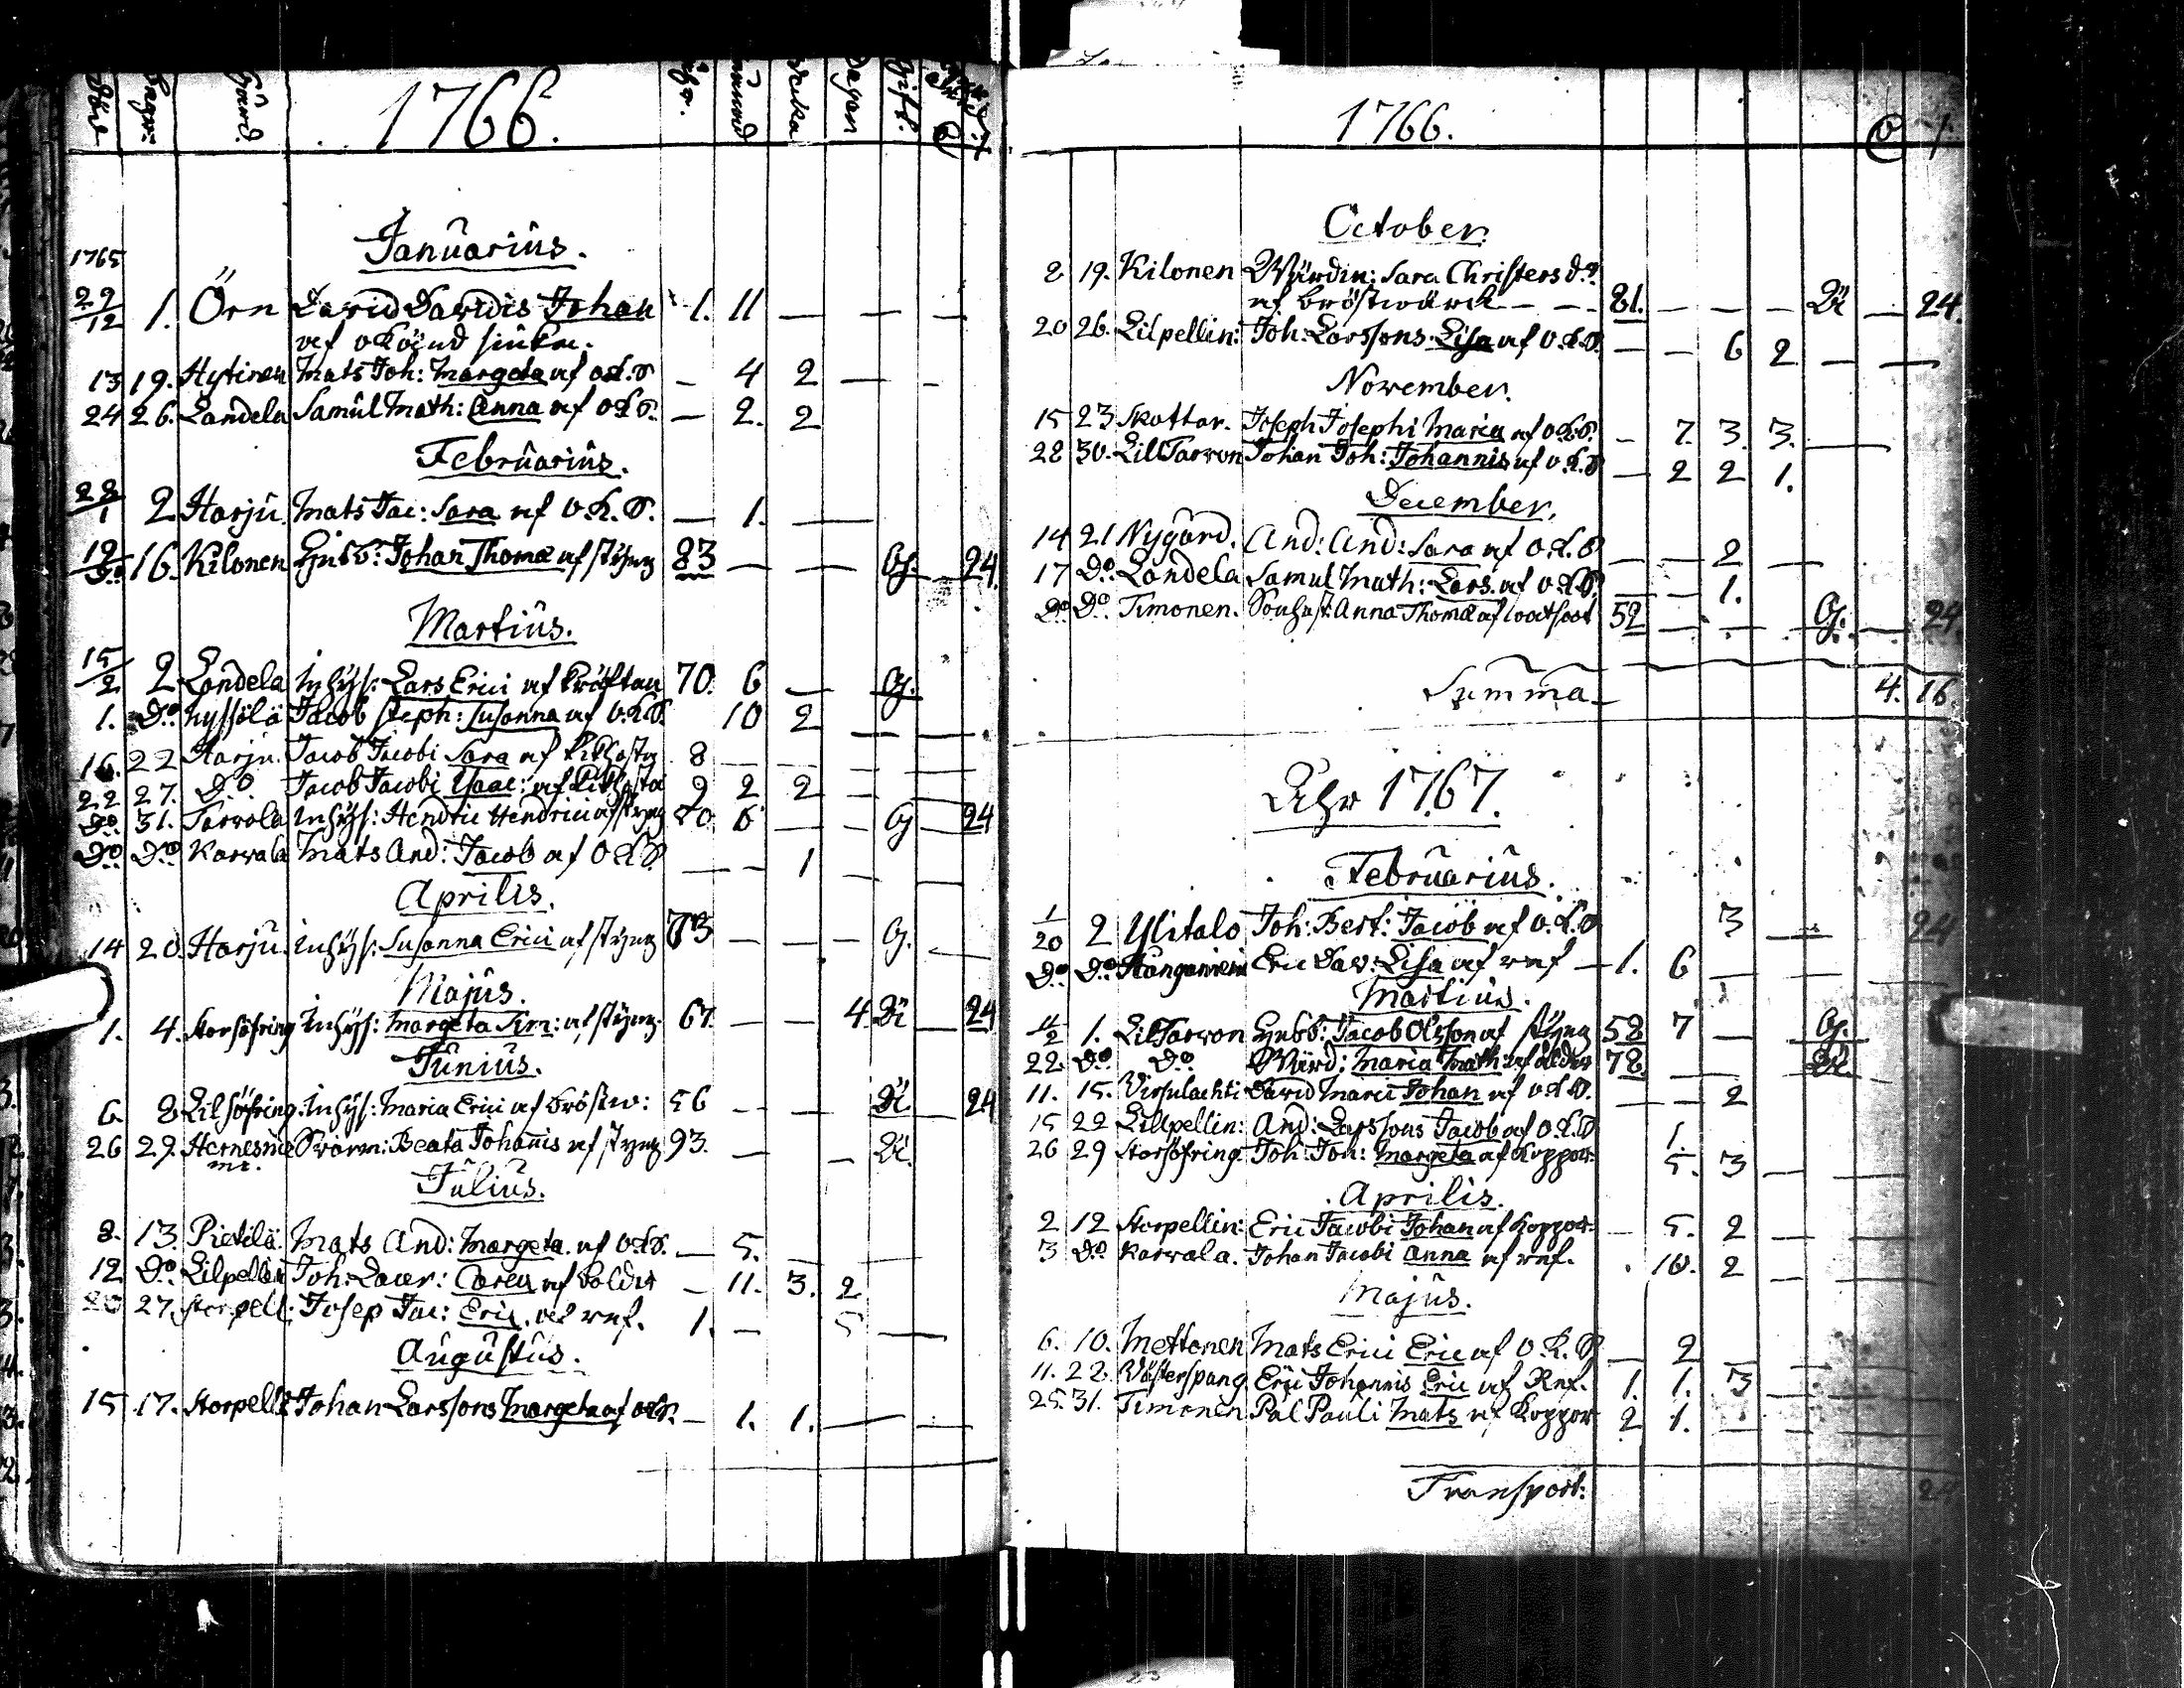 Död
Begr:
Gård.
1766.
åhr.
månad
veka
dagar
Gift.
Januarius.
1765
22/12 1. Örn David Davidis Johan 1. 11 — — —
af okänd siuka.
13 19. Hytinen Mats Joh: Margeta af o.k.s — 4 2 — -
24 26. Landela Samul Math: Anna af o.k.s. — 2. 2
Februarius.
28/1 2 Harju Mats Jac: Sara af o.k.s. — 1. —
12/Do. 16. Kilonen Hjusb: Johan Thomæ af styng 83 — — G. — 24.
Martius.
15/2 2 Landela Inhys: Lars Erici af kräftan 70. 6 — G.
1. Do. Nyssölä Jacob Steph: Susanna af o.k.s. 10 2 — — —
16. 22 Harju. Jacob Jacobi Sara af kikhosta 8 — — — —
22 27. Do Jacob Jacobi Isaac: af kikhosta 9 2 2 — —
Do. 31. Sarvola Inhys: Hendric Hendrici af styng 20 6 — — G — 24
Do Do Karvala Mats And: Jacob af o.k.s — — 1 — —
Aprilis.
14 20. Harju. Inhys: Susanna Erici af styng 73 — — — G. —
Majus.
1. 4. Storsöfring Inhys: Margeta Sim: af styng. 67 — — 4. Æ — 24
Junius.
6. 8 Lilsöfring. Inhys: Maria Erici af bröstw: 56 — — Æ — 24
26 29. Hernesnie Beata Johannis af styng 93. — — Æ.
Julius.
8. 13. Pietilä. Mats And: Margeta. af o.k.s. — 5. — —
12 Do. Lilpellin Joh: Caren af bolder — 11. 3. 2
20 27. Storpell: Josep Jac: Eric. af rnf. 1. — 5 —
Augustus.
15 17. Storpell: Johan Larssons Margeta af o.k.s. — 1. 1. — —
1766.
October.
8 19. Kilonen Wärdin: Sara Christers dr.
af bröstwärck — — — 81. — — — Æ — 24.
20 26. Lilpellin: Joh: Larssons. Lisa af o.k.s. — — 6 2 — —
November.
15 23 Skottar. Joseph Josephi Maria af o.k.s. — 7. 3. 3. —
28 30. LilTarvon Johan Joh: Johannis af o.k.s — 2 2 1.
December.
14 21 Nygård. And: And: Sara af o.k.s — — 2 —
17 Do. Landela Samul Math: Lars. af o.k.s. — — 1.
Do. Do. Timonen. Anna Thomæ af 52 — — — G. — 24
Summa 4. 16.
Åhr 1767.
Februarius.
1/20 2 Ylitalo Joh: Bert: Jacob af o.k.s 3 — 24
Do. Do. Eric Dav: Lisa af rnf — 1. 6 —
Martius.
11/2 1. LilTarvon Hjusb: Jacob Olsson af styng 58 7 — G.
22. Do Do Wärd: Maria Math: af ålder 78. — — Æ.
11. 15. Virsulachti David Marci Johan af o.k.s. — — 2
15 22 Lillpellin: And: Larssons Jacob af o.k.s 1.
26 29 Storsöfring. Joh: Joh: Margeta af koppor. 5. 3 —
Aprilis.
2 12 Storpellin: Eric Jacobi Johan af koppor. — 5. 2 —
3 Do. Karvala. Johan Jacobi Anna af rnf. 10. 2 —
Majus.
6. 10. Mettonen Mats Erici Eric af o.k.s — 2 — —
11. 22. Västerspang Eric Johannis Eric af Rnf. 1. 1. 3 —
25 31. Timonen Pål Pauli Mats af koppor 2 1. — —
Transport: 24